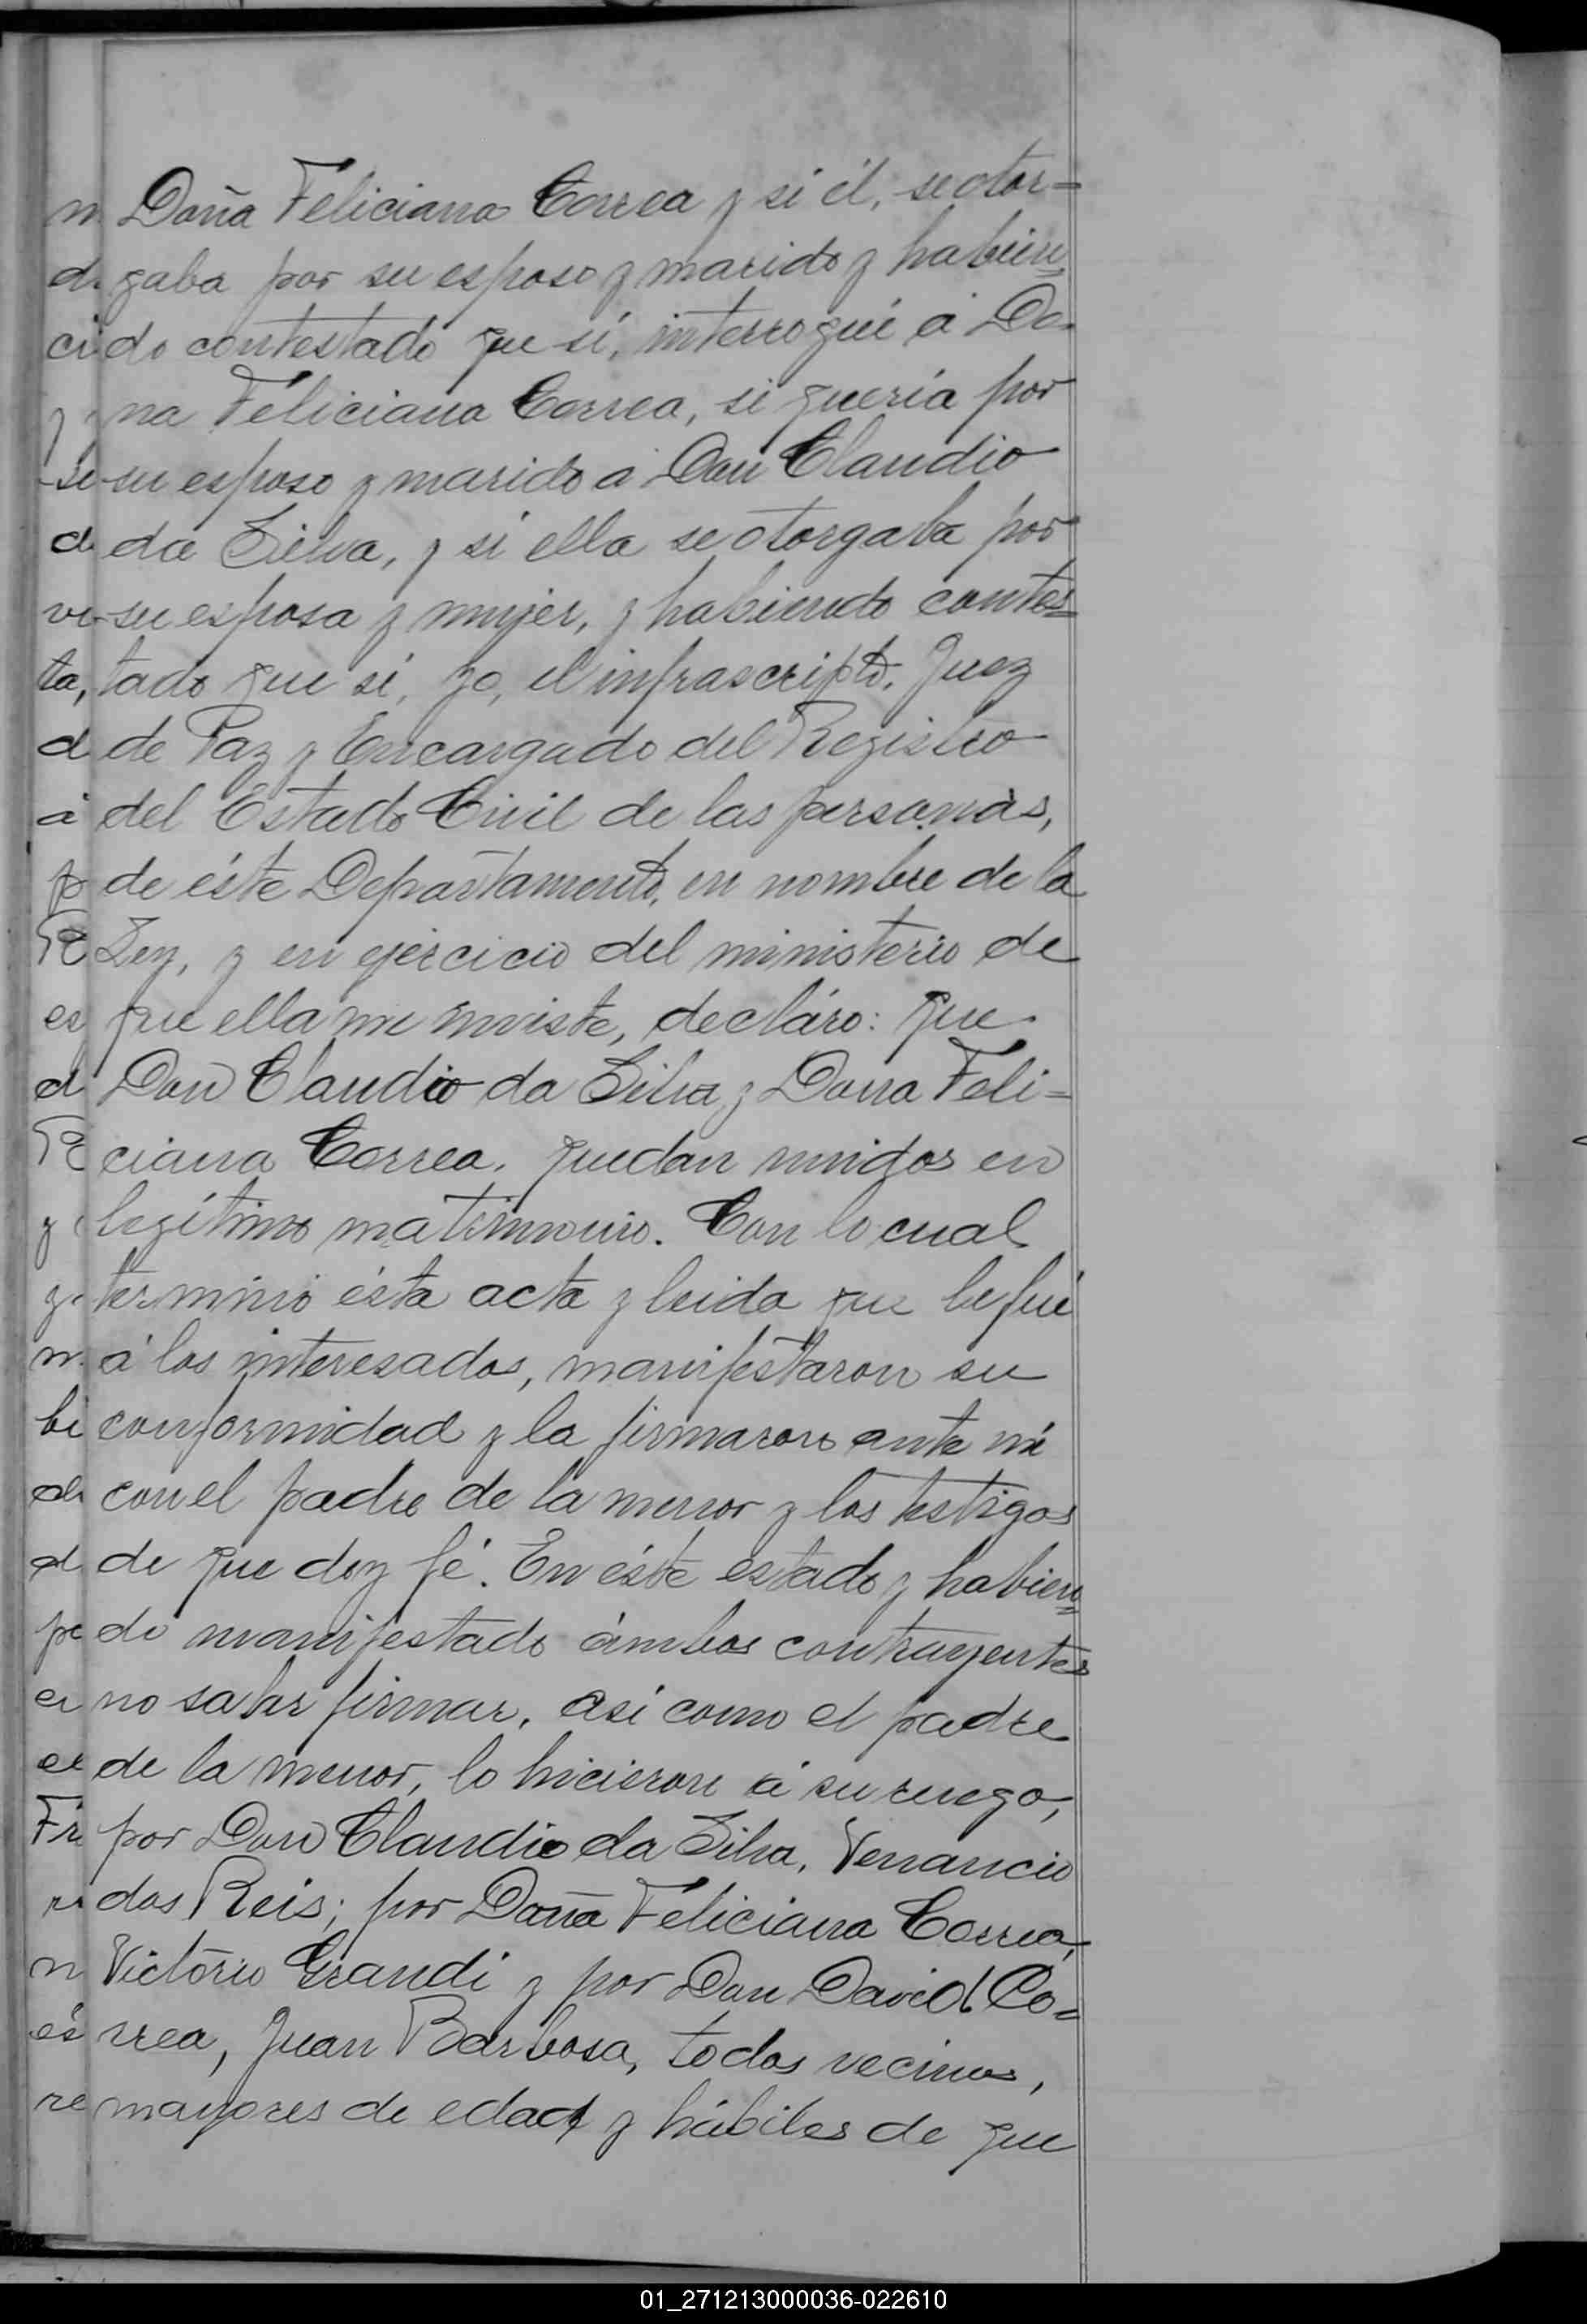 Doña Feliciana Correa y si él, se otor=
gaba por su esposo y marido y habien=
do contestado que sí, interrogué á Do-
na Feliciana Correa, si quería por
su esposo y marido á Don Claudio
da Silva, y si ella se otorgaba por
su esposa y mujer, y habiendo contes=
tado que sí, yo, el infrascripto, Juez
de Paz y Encargado del Registro
del Estado Civil de las personas,
de éste Departamento, en nombre de la
Ley, y en ejercicio del ministerio de
que ella me inviste, decláro: que
Don Claudio da Silva y Dona Feli=
ciana Correa, quedan unidos en
legítimo matrimonio. Con lo cual
terminó ésta acta y leida que le fué
á los interesados, manifestaron su
conformidad y la firmaron ante mi
con el padre de la menor y los testigos
de que doy fé. En éste estado y habien=
do manifestado ámbos contrayentes
no saber firmar, asi como el padre
de la menor, lo hicieron á su ruego,
por Don Claudio da Silva, Venancio
dos Reis; por Doña Feliciana Correa,
Victório Grandi y por Don David Co=
rrea, Juan Barbosa, todos vecinos,
mayores de edad y hábiles de que
01_271213000036-022610